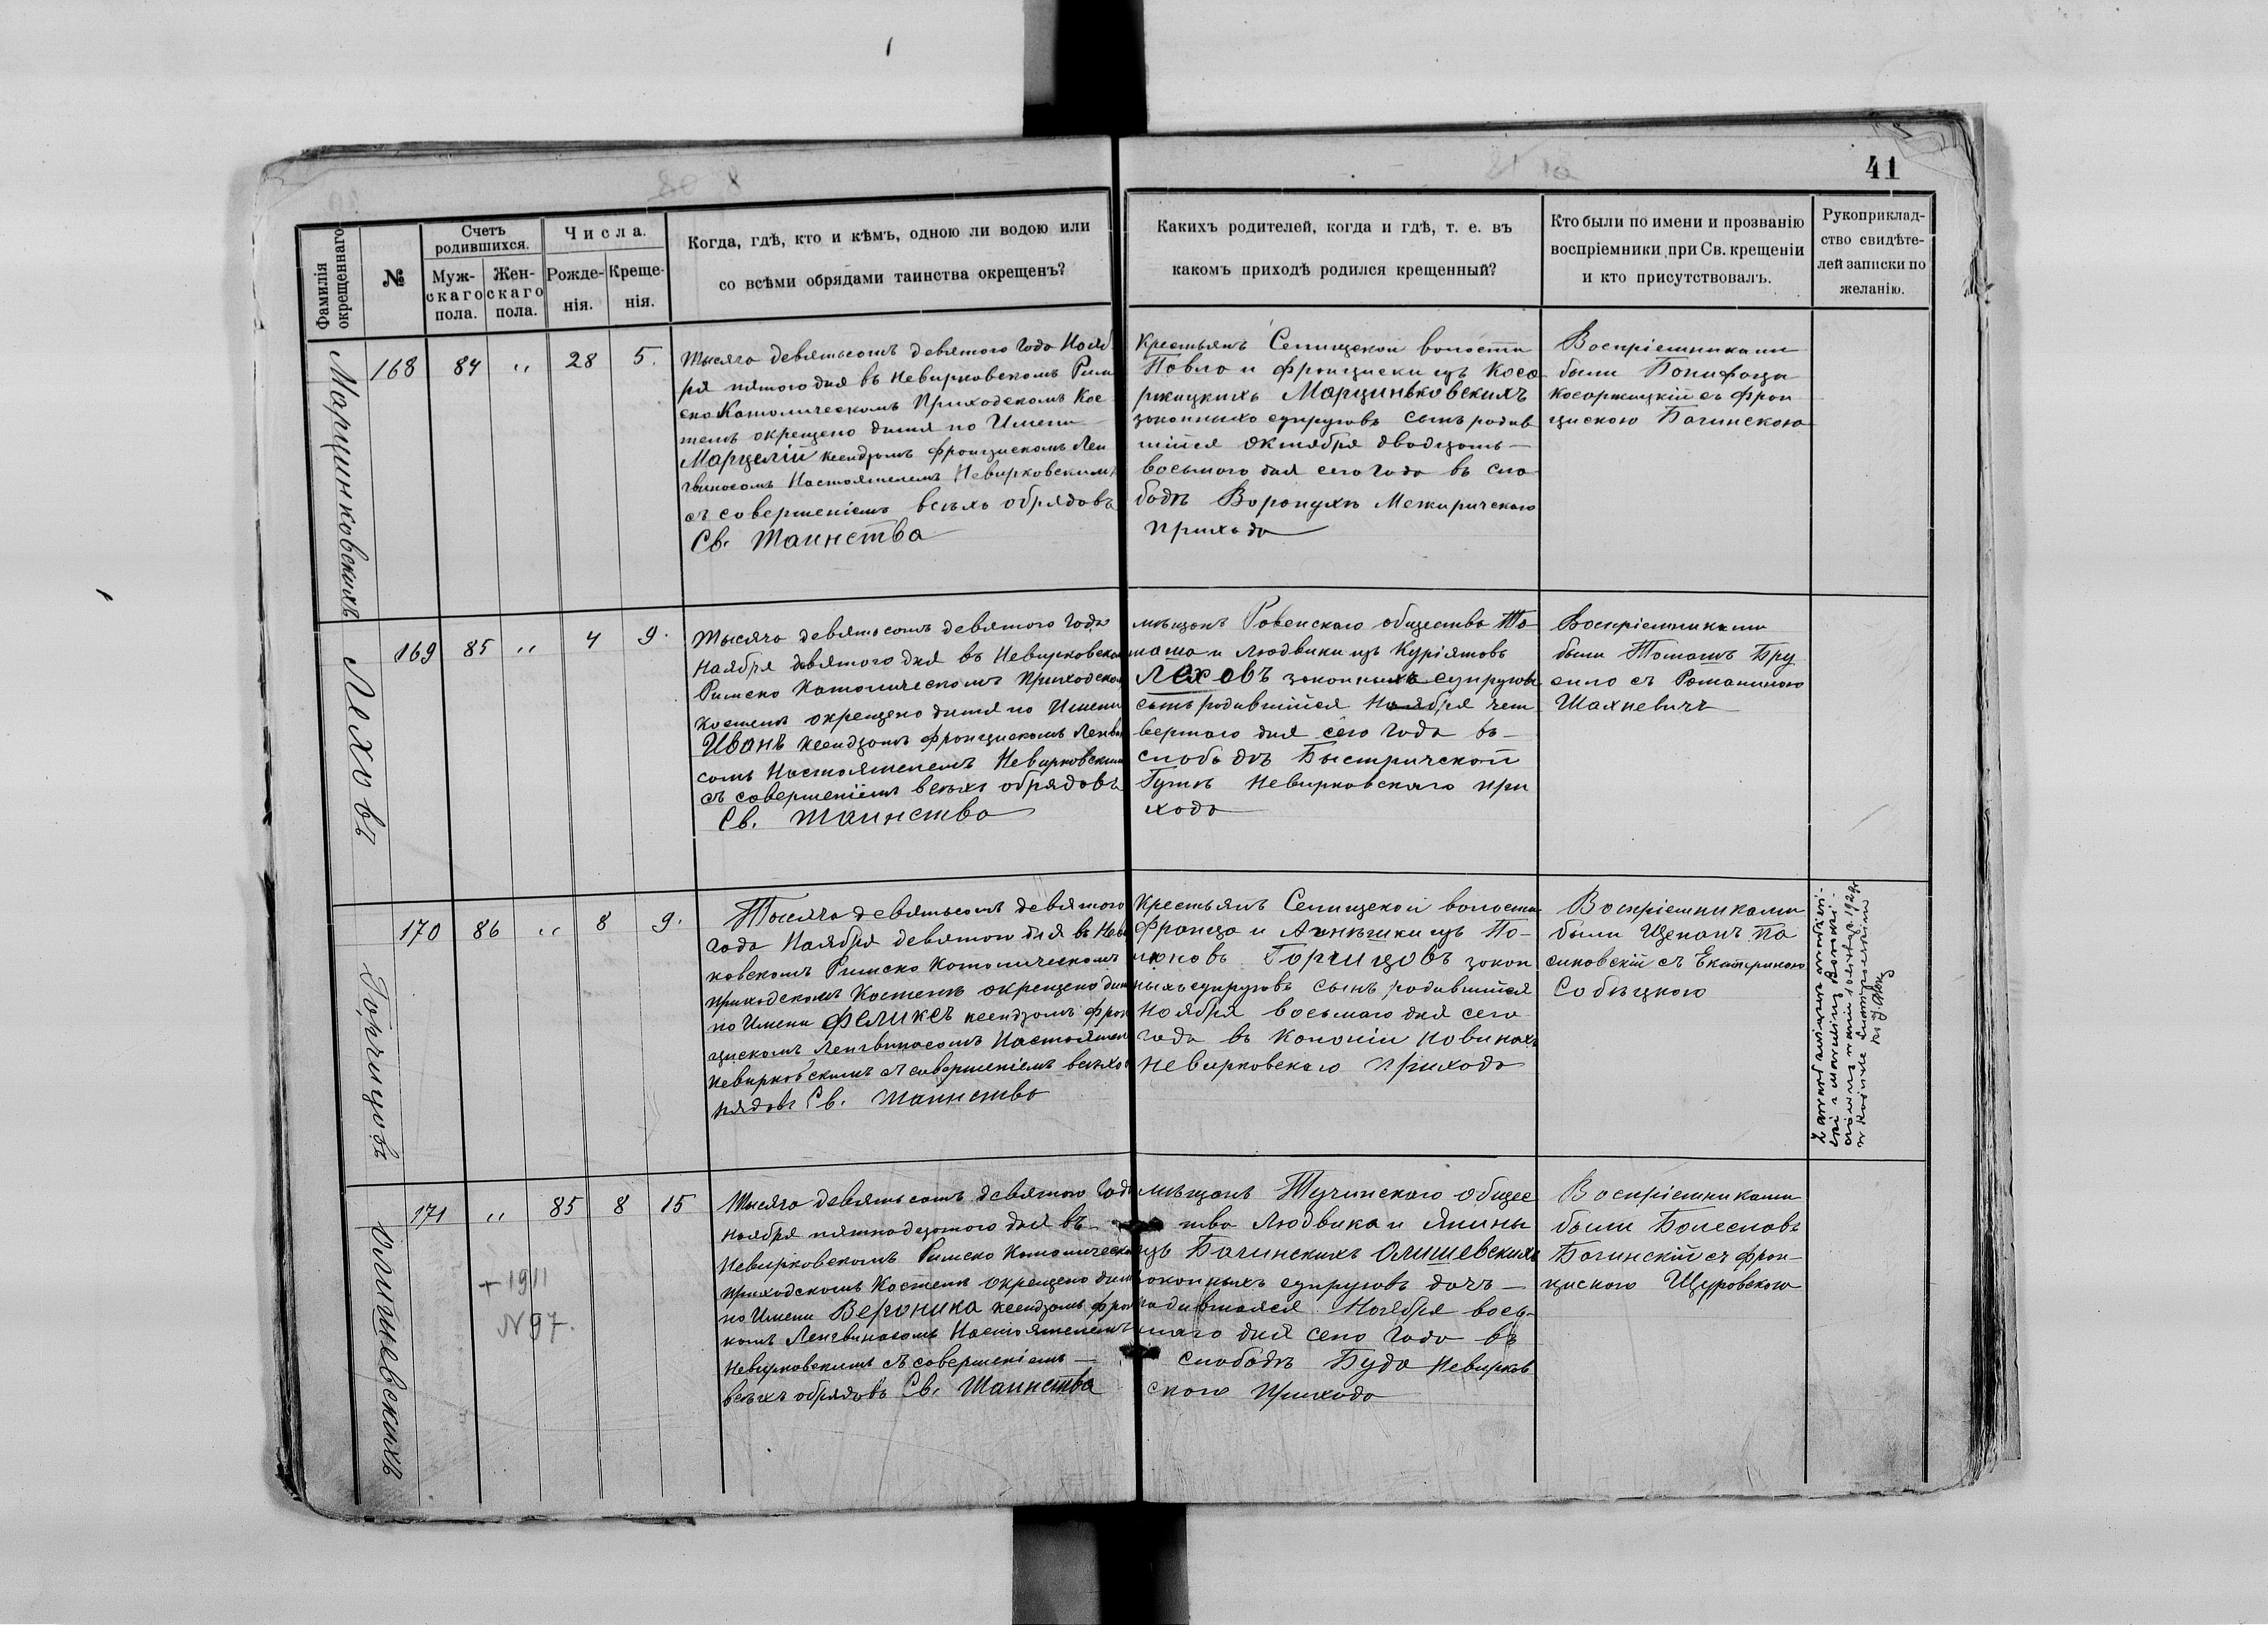 41
Фамилія окрещеннаго
№
Счетъ родившихся.
Муж-
скаго
пола.
Жен-
скаго
пола.
Числа.
Рожде-
нія.
Креще-
нія.
Когда, гдѣ, кто и кѣмъ, одною ли водою или
со всѣми обрядами таинства окрещенъ?
Какихъ родителей, когда и гдѣ, т. е. въ
какомъ приходѣ родился крещенный?
Кто были по имени и прозванію
воспріемники при Св. крещеніи
и кто присутствовалъ.
Рукоприклад-
ство свидѣте-
лей записки по
желанію.
Марцинковскихъ
168 84 " 28 5.
Тысяча девятьсотъ девятого года Нояб
ря пятого дня въ Невирковскомъ Рим
ско Католическомъ Приходскомъ Кос
телѣ окрещено дитя по Имени
Марцелій ксендзомъ Францискомъ Лен
гвиносомъ Настоятелемъ Невирковскимъ
съ совершеніемъ всѣхъ обрядовъ
Св. Таинства
Крестьянъ Селищской волости
Павла и Францишки изъ Коса
ржицкихъ Марциньковскихъ
законныхъ супруговъ сынъ родив
шійся октября двадцать
восьмого дня сего года въ сло
бодѣ Воронухѣ Межиричскаго
прихода
Воспріемниками
были Бонифаци
Косаржицкій съ Фран
цискою Багинскою
Леховъ
169 85 " 4 9.
Тысяча девятьсотъ девятого года
Наября девятого дня въ Невирковском
Римско Католическомъ Приходском
Костелѣ окрещено дитя по Имени
Иванъ ксендзомъ Францискомъ Ленгви
сомъ Настоятелемъ Невирковским
съ совершеніемъ всѣхъ обрядовъ
Св. Таинства
мѣщанъ Ровенскаго общества То-
маша и Людвики изъ Куріятовъ
Леховъ законныхъ супруговъ
сынъ родившійся Ноября чет
вертого дня сего года въ
слободѣ Быстричской
Гутѣ Невирковскаго при
хода
Воспріемниками
были Томашъ Бру
сило съ Романиною
Шахневичъ
Горчицовъ
170 86 " 8 9.
Тысяча девятьсотъ девятого
года Наября девятого дня въ Невир
ковскомъ Римско Католическомъ
Приходскомъ Костелѣ окрещено дит
по Имени Феликсъ ксендзомъ Фран
цискомъ Ленгвиносомъ Настоятелем
Невирковскимъ съ совершеніемъ всѣхъ об
рядовъ Св. Таинства
Крестьянъ Селищской волости
Франца и Агнѣшки изъ По-
Горчицовъ закон
ныхъ супруговъ сынъ родившійся
Ноября восьмаго дня сего
года въ Колоніи Новинахъ
Невирковскаго прихода
Воспріемниками
были Щепанъ Па
сиковскій съ Екатериною
Собѣцкою
Олишевскихъ
171 " 85 8 15
+ 1911
N 97.
Тысяча девятьсотъ девятого года
Ноября пятнадцатого дня въ
Невирковскомъ Римско Католическом
Приходскомъ Костелѣ окрещено дит
по Имени Вероника ксендзомъ Фран
комъ Ленгвиносомъ Настоятелемъ
Невирковскимъ съ совершеніемъ
всѣхъ обрядовъ Св. Таинства
мѣщанъ Тучинскаго общес
тва Людвика и Янины
изъ Багинскихъ Олишевскихъ
законныхъ супруговъ дочь
родившаяся Ноября вось-
маго дня сего года въ
слободѣ Буда Невирков
скаго прихода
Воспріемниками
были Болеславъ
Багинскій съ Фран-
цискою Щуровскою